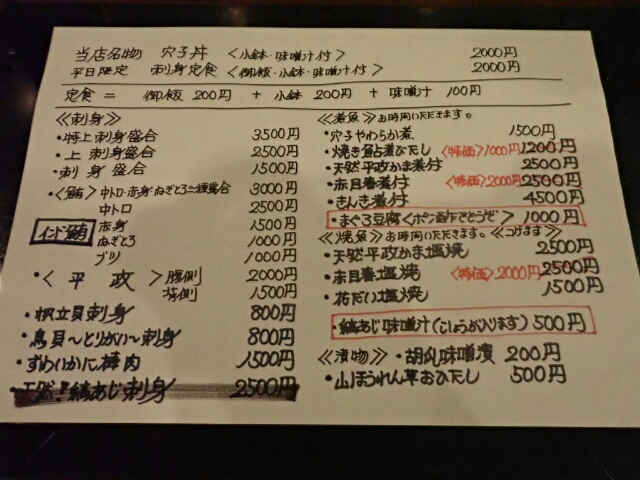 当店名物 穴子丼 〈小鉢・味噌汁付〉 2000円
平日限定 刺身定食 〈御飯・小鉢・味噌汁付〉 2000円
定食= 御飯 200円 + 小鉢 200円 + 味噌汁 100円
≪刺身≫
・特上刺身盛合 3500円
・上 刺身盛合 2500円
・刺身 盛合 1500円
・〈鮪〉中トロ・赤身・ねぎとろ三種盛合 3000円
中トロ 2500円
インド鮪 赤身 1500円
ねぎとろ 1000円
ブツ 1000円
・〈平政〉腹側 2000円
背側 1500円
・帆立貝刺身 800円
・鳥貝〜とりがい〜刺身 800円
・ずわいかに棒肉 1500円
・天然!縞あじ刺身 2500円
≪煮魚≫お時間いただきます。
・穴子やわらか煮 1500円
・焼き魚煮びたし 〈特価〉1000円 1200円
・天然平政かま煮付 2500円
・赤目春煮付 〈特価〉2000円 2500円
・きんき煮付 4500円
・まぐろ豆腐〈ポン酢でどうぞ〉 1000円
≪焼魚≫お時間いただきます。≪こげます≫
・天然平政かま塩焼 2500円
・赤目春塩焼 〈特価〉2000円 2500円
・花だい塩焼 1500円
・縞あじ味噌汁(こしょうが入ります) 500円
≪漬物≫・胡瓜味噌漬 200円
・山ほうれん草おひたし 500円